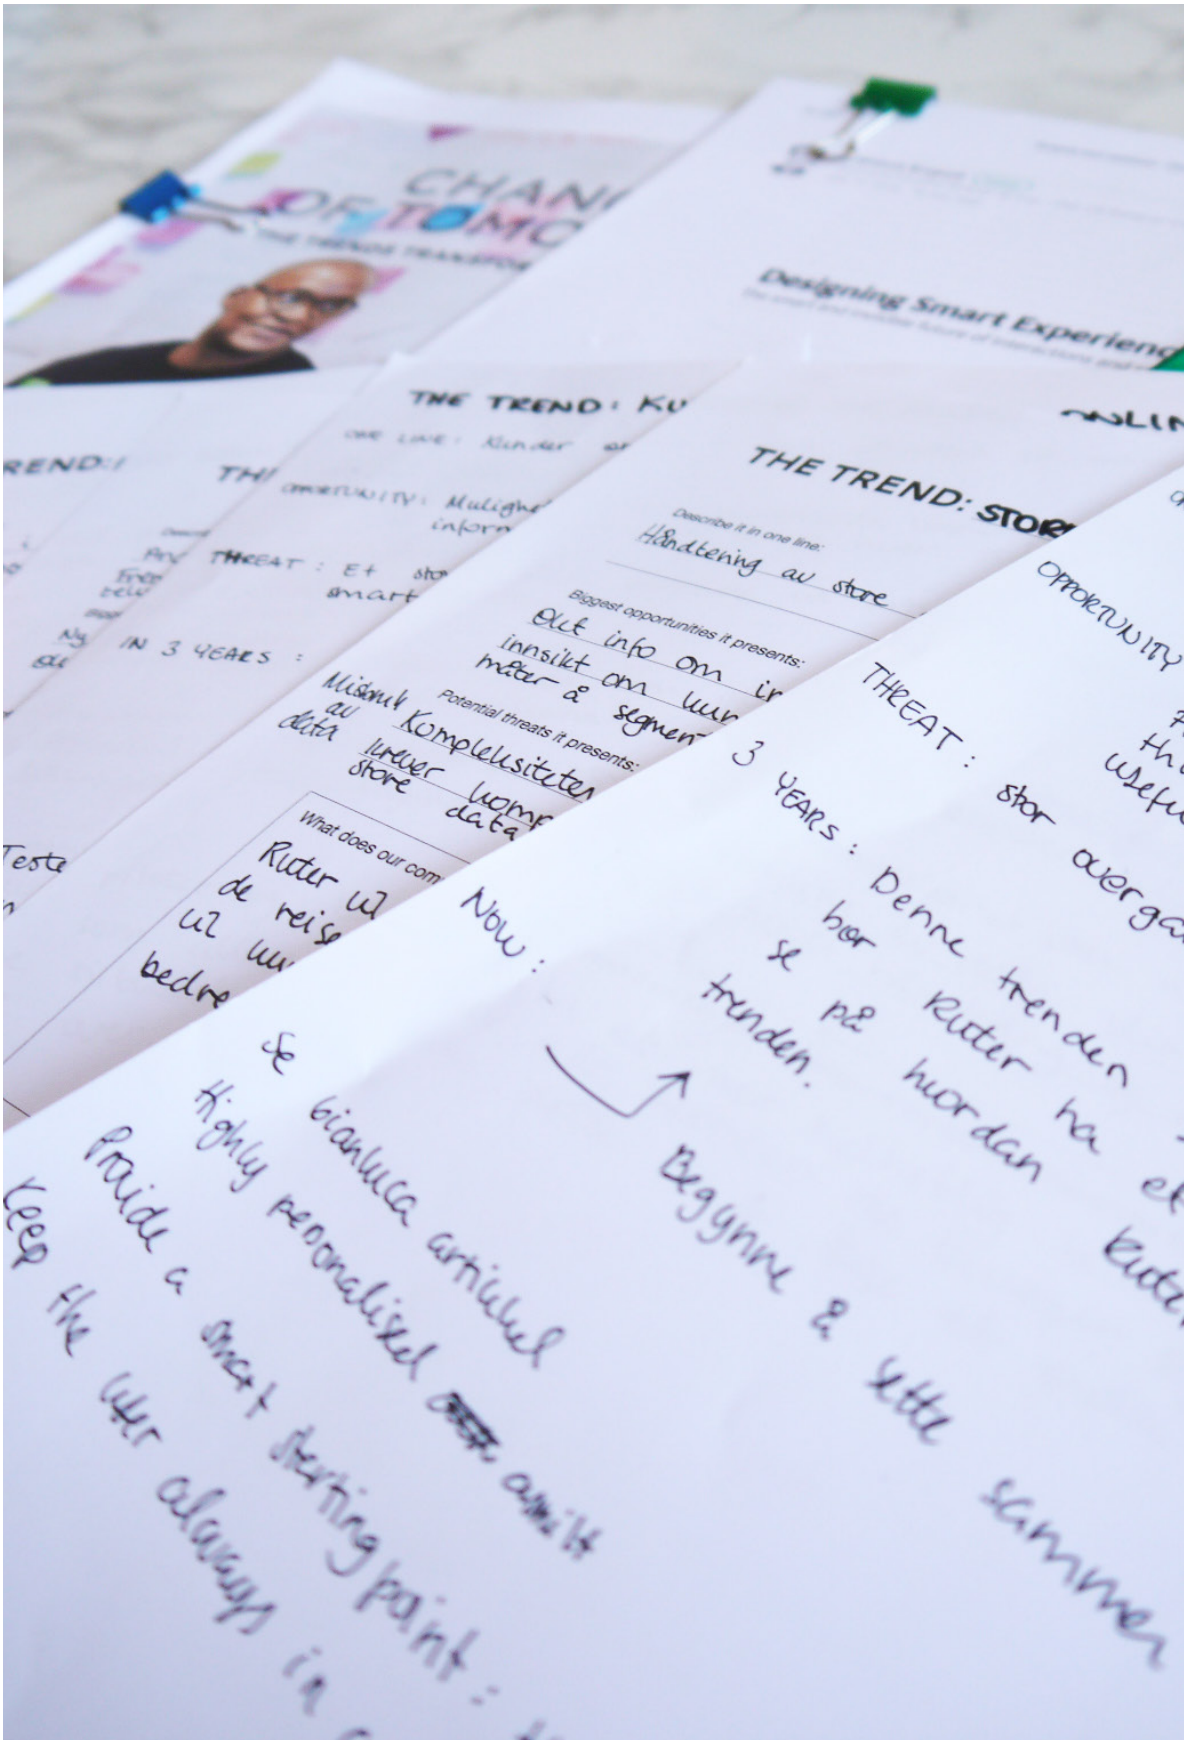 CHAN
OF TOMO
THE TRENDS TRANSFOR
Designing Smart Experienc
REND:
TH
THE TREND: KU
ONE LINE: Kunder
OPPORTUNITY: Mulighe
inform
THREAT: Et sto
smart
IN 3 YEARS:
Ny
Teste
NLIN
THE TREND: STOR
Describe it in one line:
Håndtering av store
Biggest opportunities it presents:
Økt info om in
innsikt om kun
måter å segmen
Potential threats it presents:
Misbruk
av
data
Kompleksiteten
krever komp
store data
What does our com
Ruter vil
de reise
vil kun
bedre
OPPORTUNITY
th
usefu
THREAT: stor overga
3 YEARS: Denne trenden
bør Ruter ha et
se på hvordan Ruter
trenden.
NOW:
Begynne å sette sammen
Se Gianluca artikkel
Highly personalised
Provide a smart starting point:
Keep the user always in